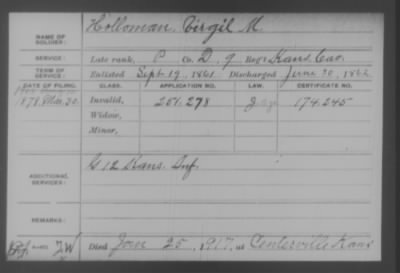 NAME OF SOLDIER: Holloman, Virgil M.
SERVICE: Late rank, P Co. D, 9 Reg't Kans. Cav.
TERM OF SERVICE: Enlisted Sept. 19, 1861 Discharged June 30, 1862
DATE OF FILING. CLASS. APPLICATION NO. LAW. CERTIFICATE NO.
1878 Mch. 30. Invalid, 251.278 174.245
Widow,
Minor,
ADDITIONAL SERVICES: G 12 Kans. Inf.
REMARKS:
Died Jan 25, 1917, at Centerville Kans